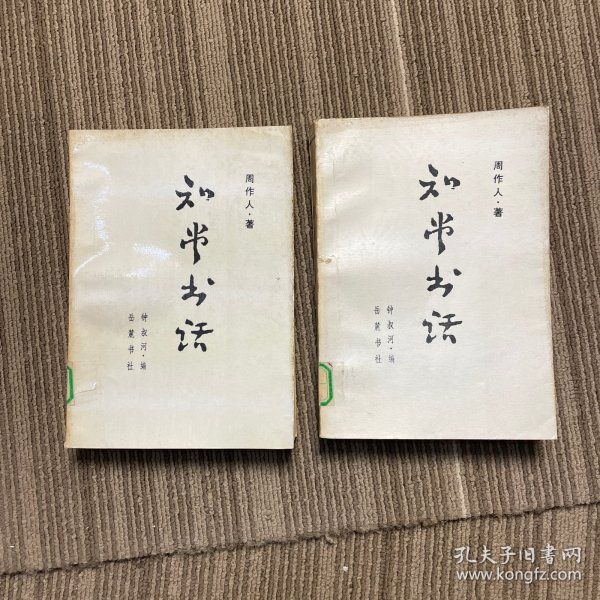 周作人·著
知堂书话
钟叔河·编
岳麓书社
周作人·著
知堂书话
钟叔河·编
岳麓书社
孔夫子旧书网
www.kongfz.com